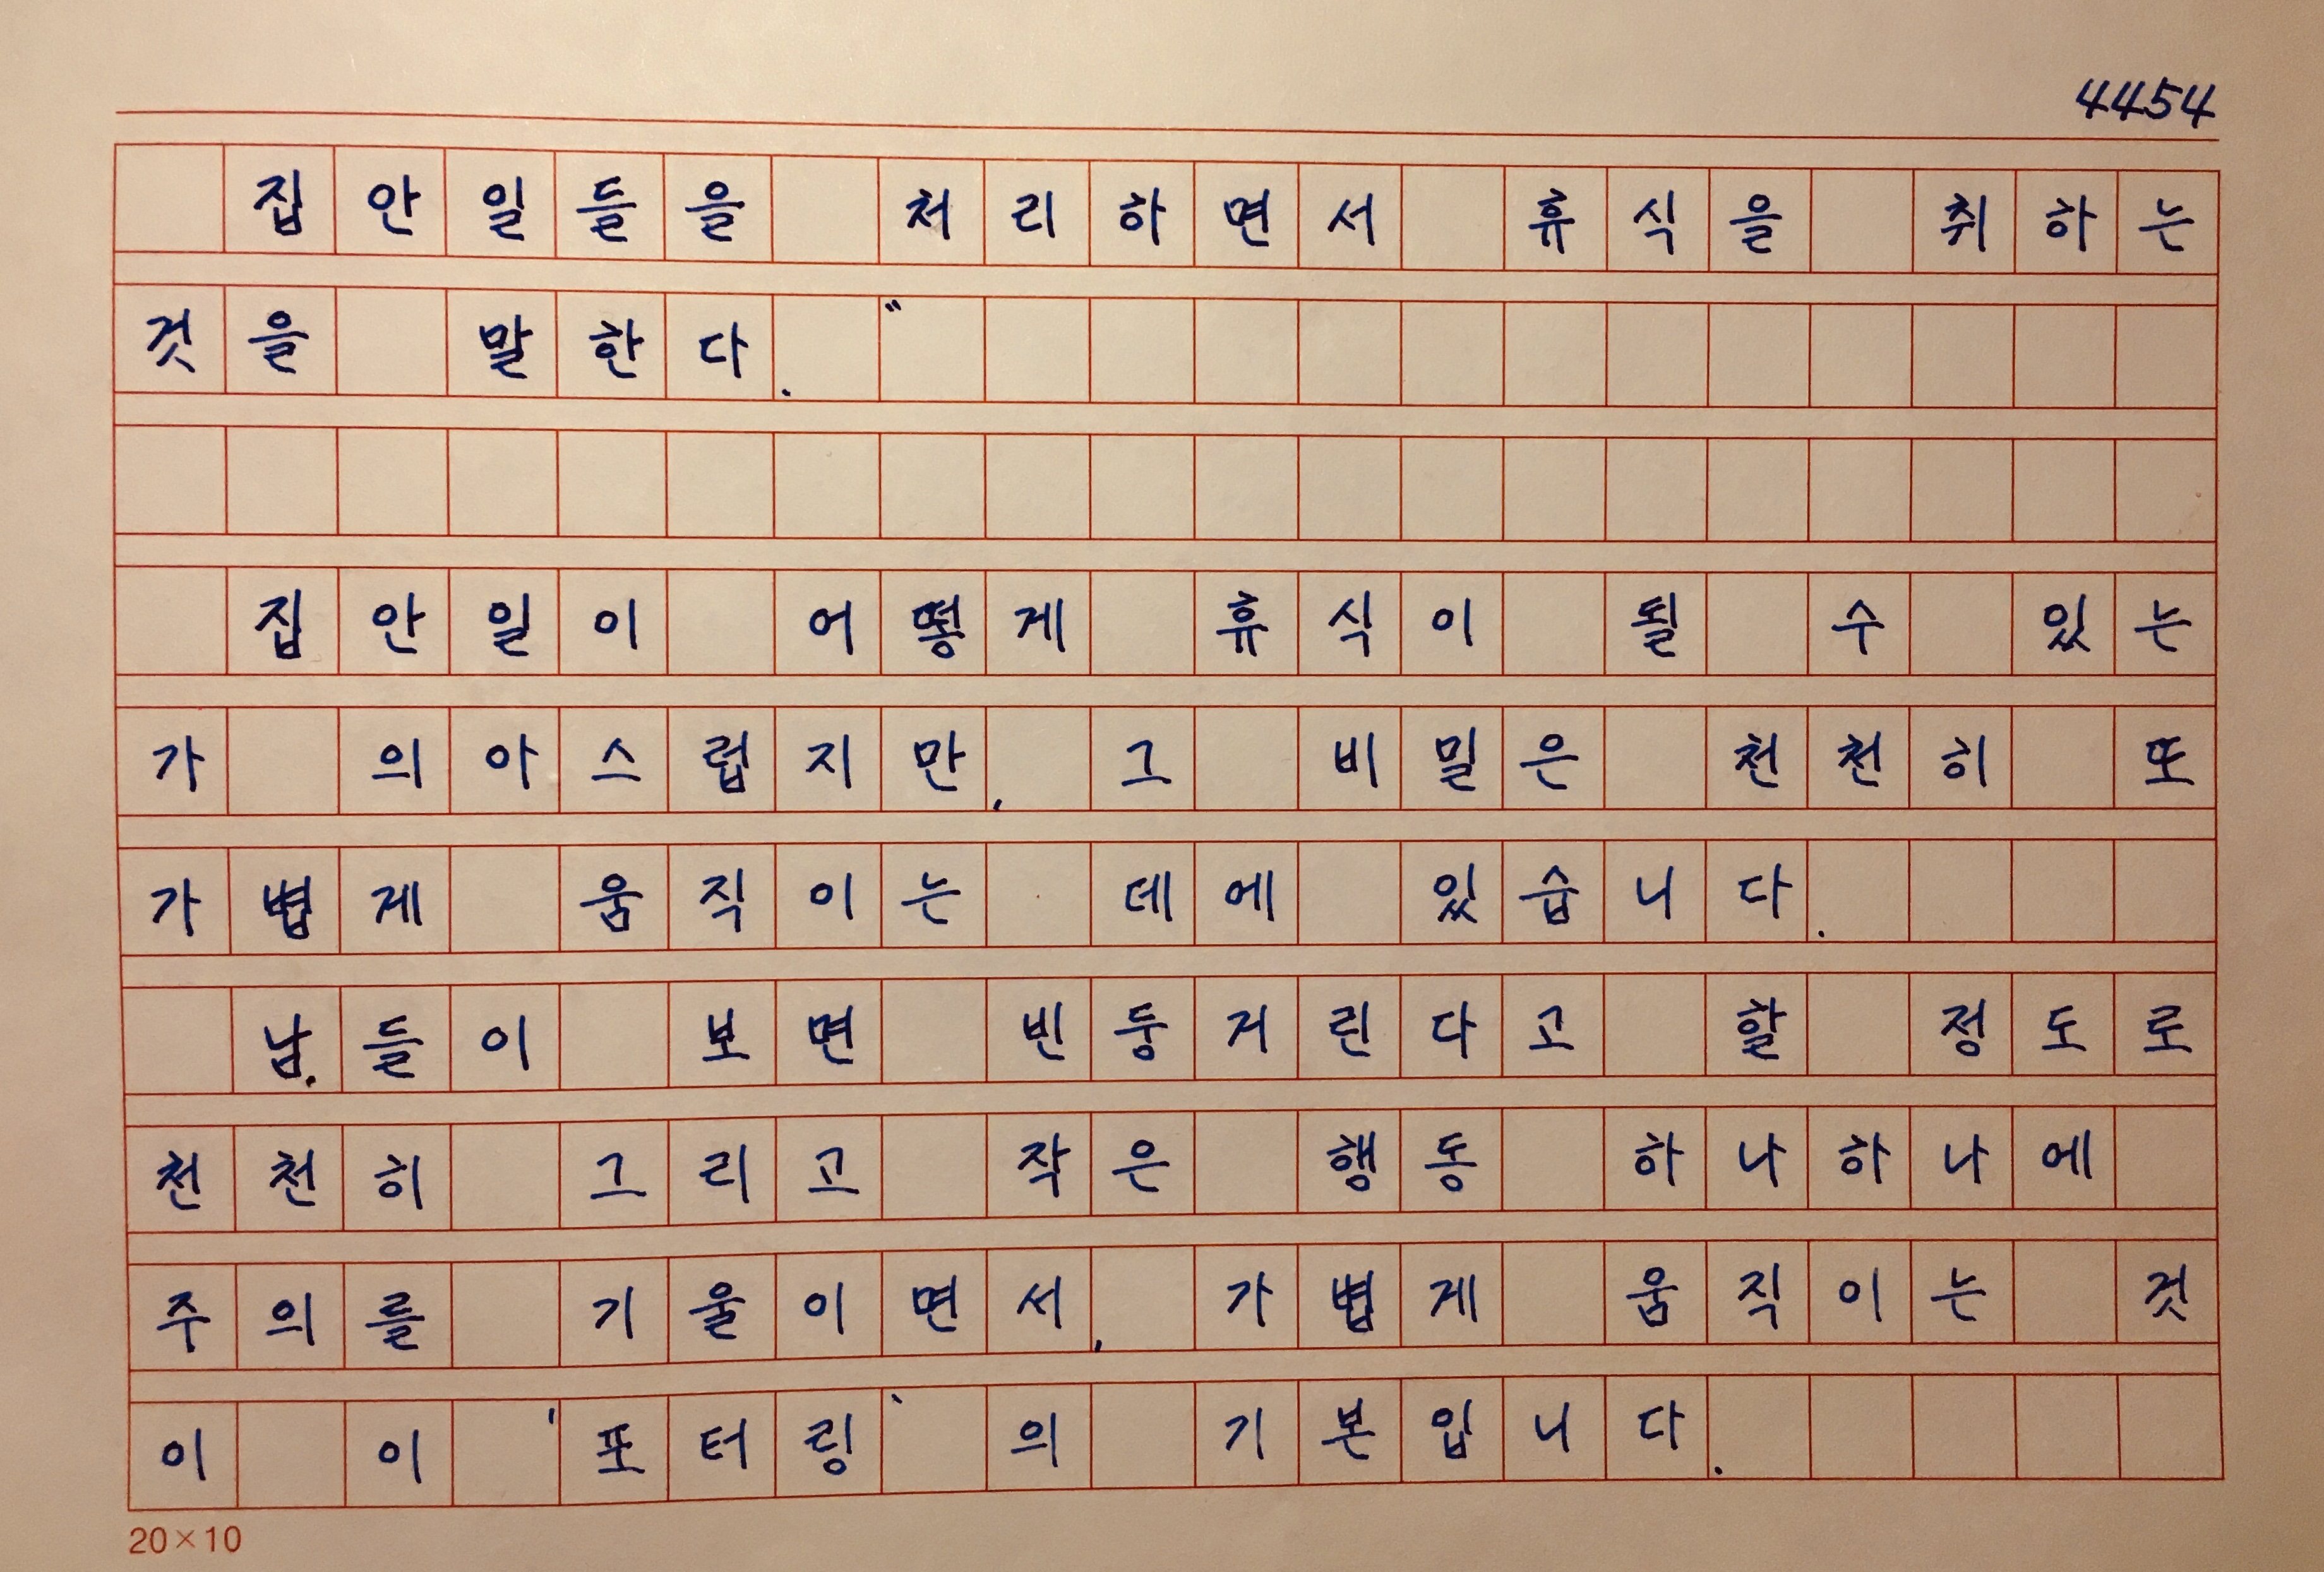 4454
집안일들을 처리하면서 휴식을 취하는
것을 말한다."
집안일이 어떻게 휴식이 될 수 있는
가 의아스럽지만, 그 비밀은 천천히 또
가볍게 움직이는 데에 있습니다.
남들이 보면 빈둥거린다고 할 정도로
천천히 그리고 작은 행동 하나하나에
주의를 기울이면서, 가볍게 움직이는 것
이 이 '포터링'의 기본입니다.
20×10